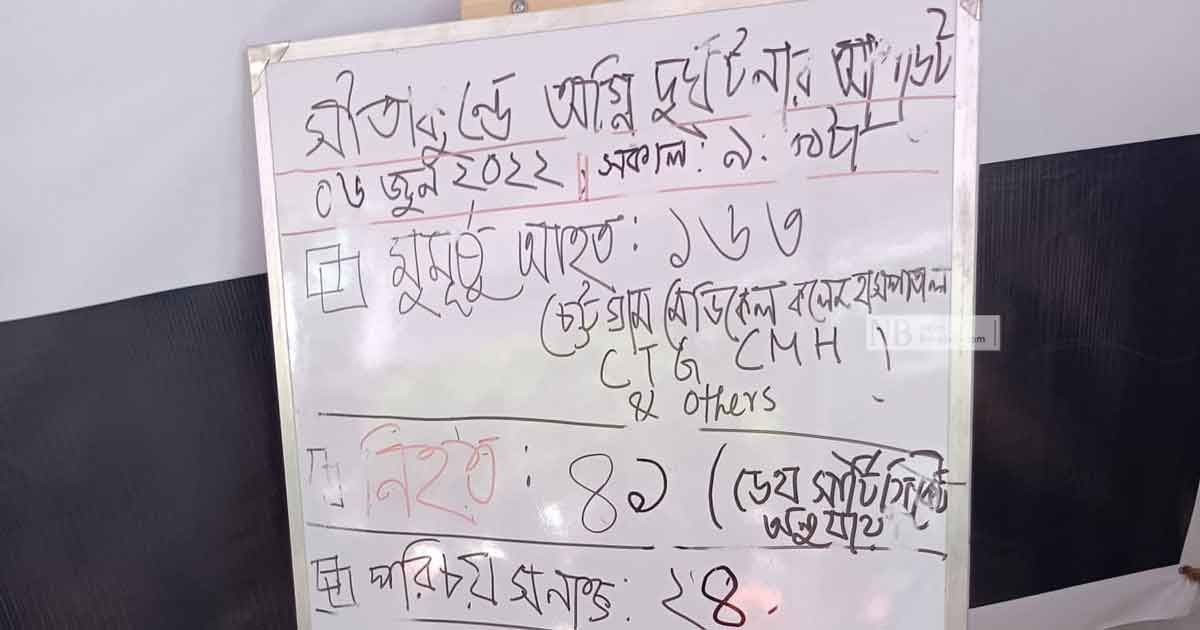 সীতাকুন্ডে অগ্নি দুর্ঘটনার আপডেট
০৬ জুন ২০২২, সকাল: ৯:
মুমূর্ষু আহত: ১৬৩
(চট্টগ্রাম মেডিকেল কলেজ হাসপাতাল
CTG CMH)
& others
নিহত: ৪১ (ডেথ সার্টিফিকেট
অনুযায়
পরিচয় সনাক্ত: ২৪.
NB